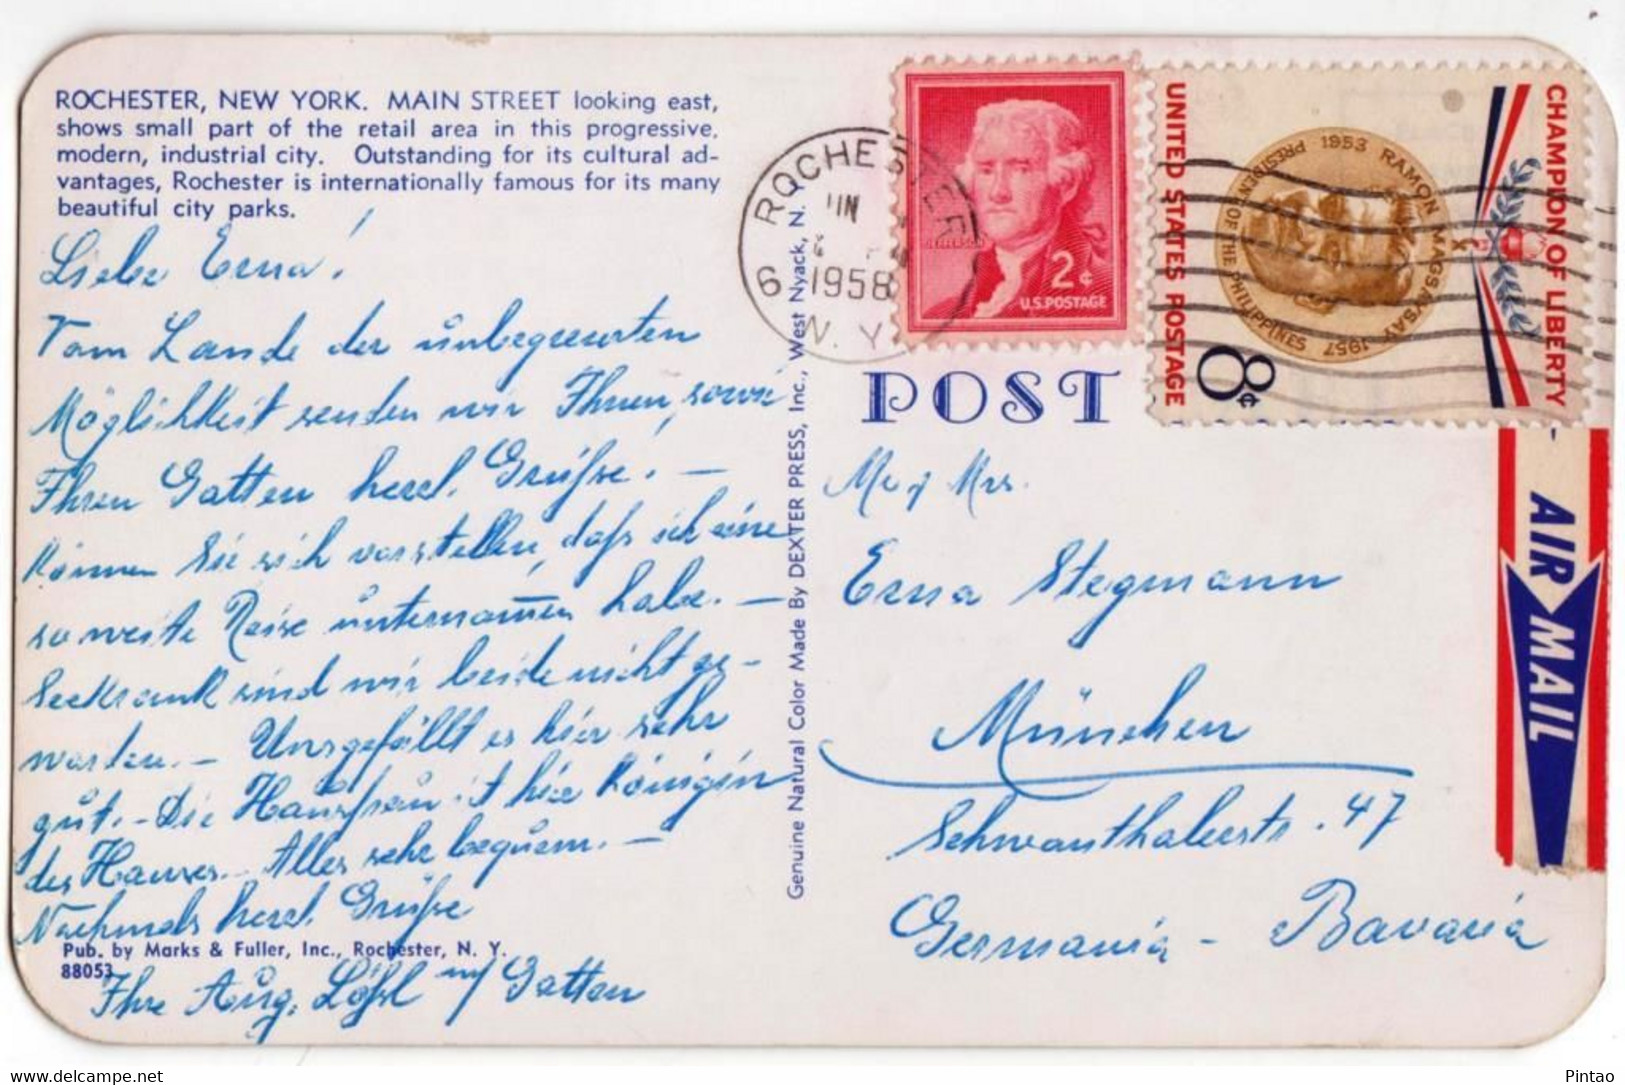 ROCHESTER, NEW YORK. MAIN STREET looking east,
shows small part of the retail area in this progressive,
modern, industrial city. Outstanding for its cultural ad-
vantages, Rochester is internationally famous for its many
beautiful city parks.
Liebe Erna!
Vom Lande der unbegrenzten
Möglichkeit senden wir Ihnen, sowie
Ihren Gatten herzl. Grüße. —
Können Sie sich vorstellen, daß ich eine
so weite Reise unternommen habe. —
Seekrank sind wir beide nicht ge-
worden. — Uns gefällt es hier sehr
gut. — Die Hausfrau ist hier Königin
des Hauses. — Alles sehr bequem. —
Nochmals herzl. Grüße
Pub. by Marks & Fuller, Inc., Rochester, N. Y.
88053
Ihre Aug. Lößl mit Gatten
Genuine Natural Color Made By DEXTER PRESS, Inc., West Nyack, N.
ROCHESTER
JUN
6
1958
N. Y.
JEFFERSON
2¢
U.S. POSTAGE
UNITED STATES POSTAGE
8¢
1953 RAMON MAGSAYSAY 1957
PRESIDENT OF THE PHILIPPINES
CHAMPION OF LIBERTY
POST
AIR MAIL
Mr & Mrs.
Erna Stegmann
München
Schwanthalerstr. 47
Germania - Bavaria
www.delcampe.net
Pintao